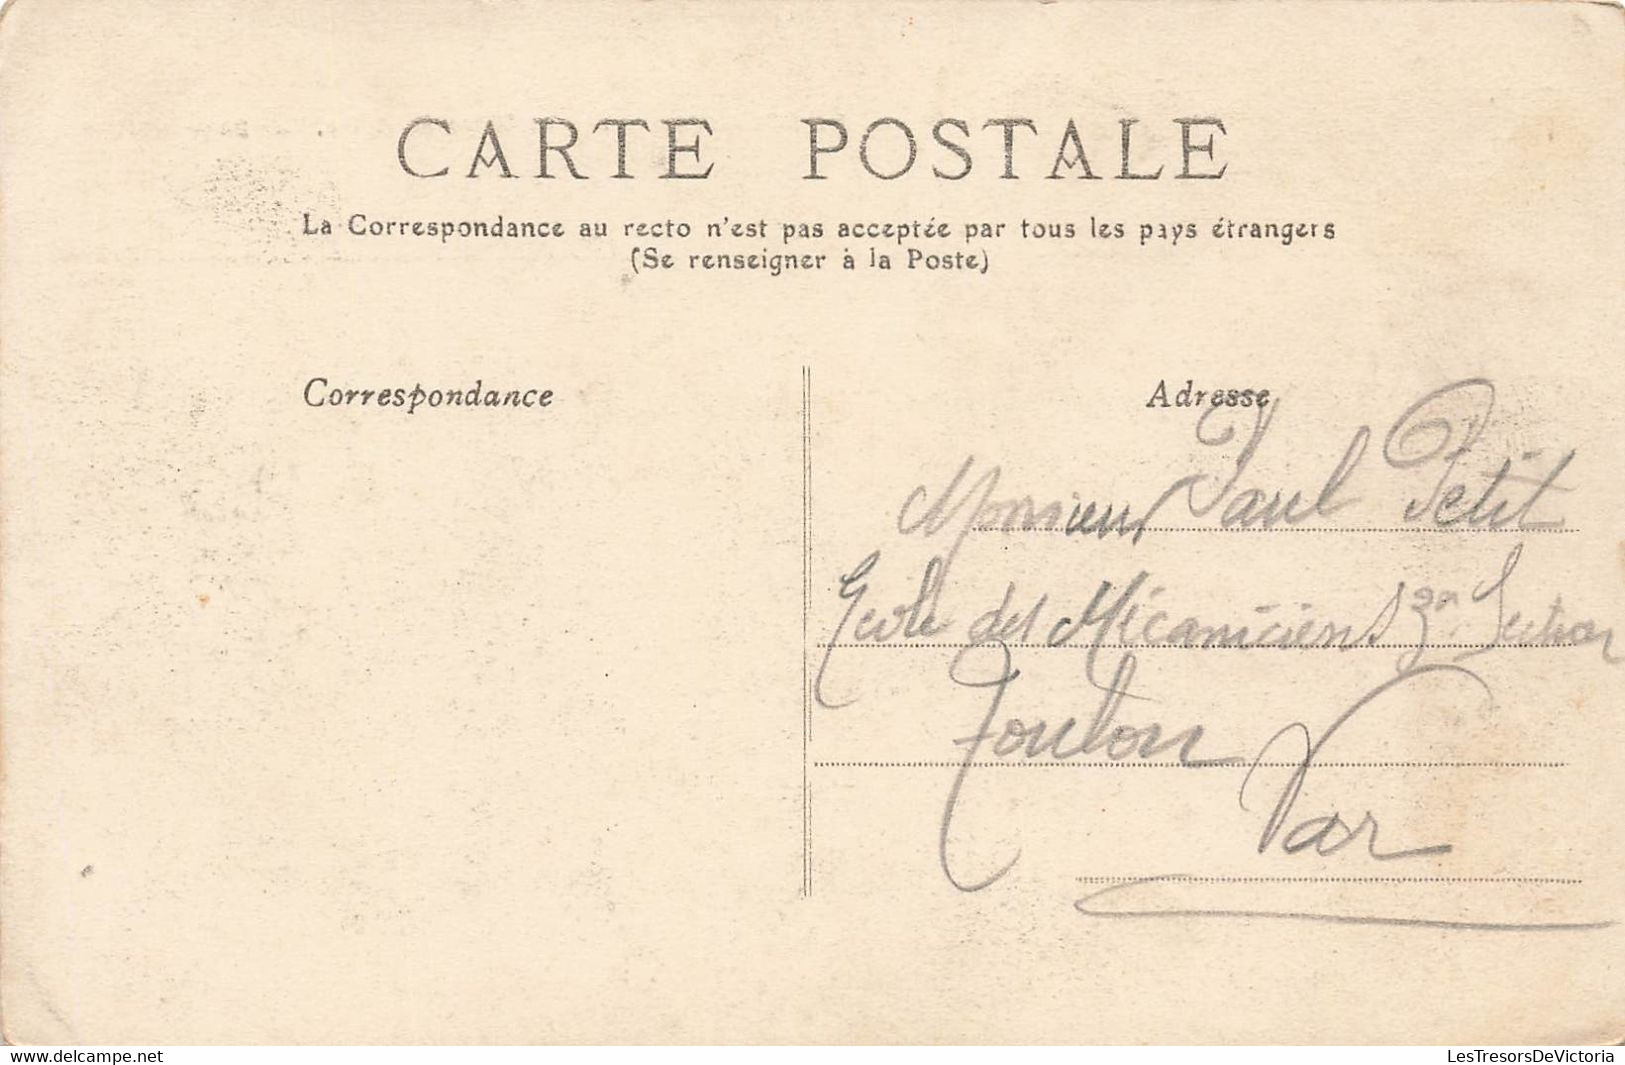 CARTE POSTALE
La Correspondance au recto n'est pas acceptée par tous les pays étrangers
(Se renseigner à la Poste)
Correspondance
Adresse
Monsieur Paul Petit
Ecole des Mécaniciens 3n Section
Toulon
Var
delcampe.net
LesTresorsDeVictoria